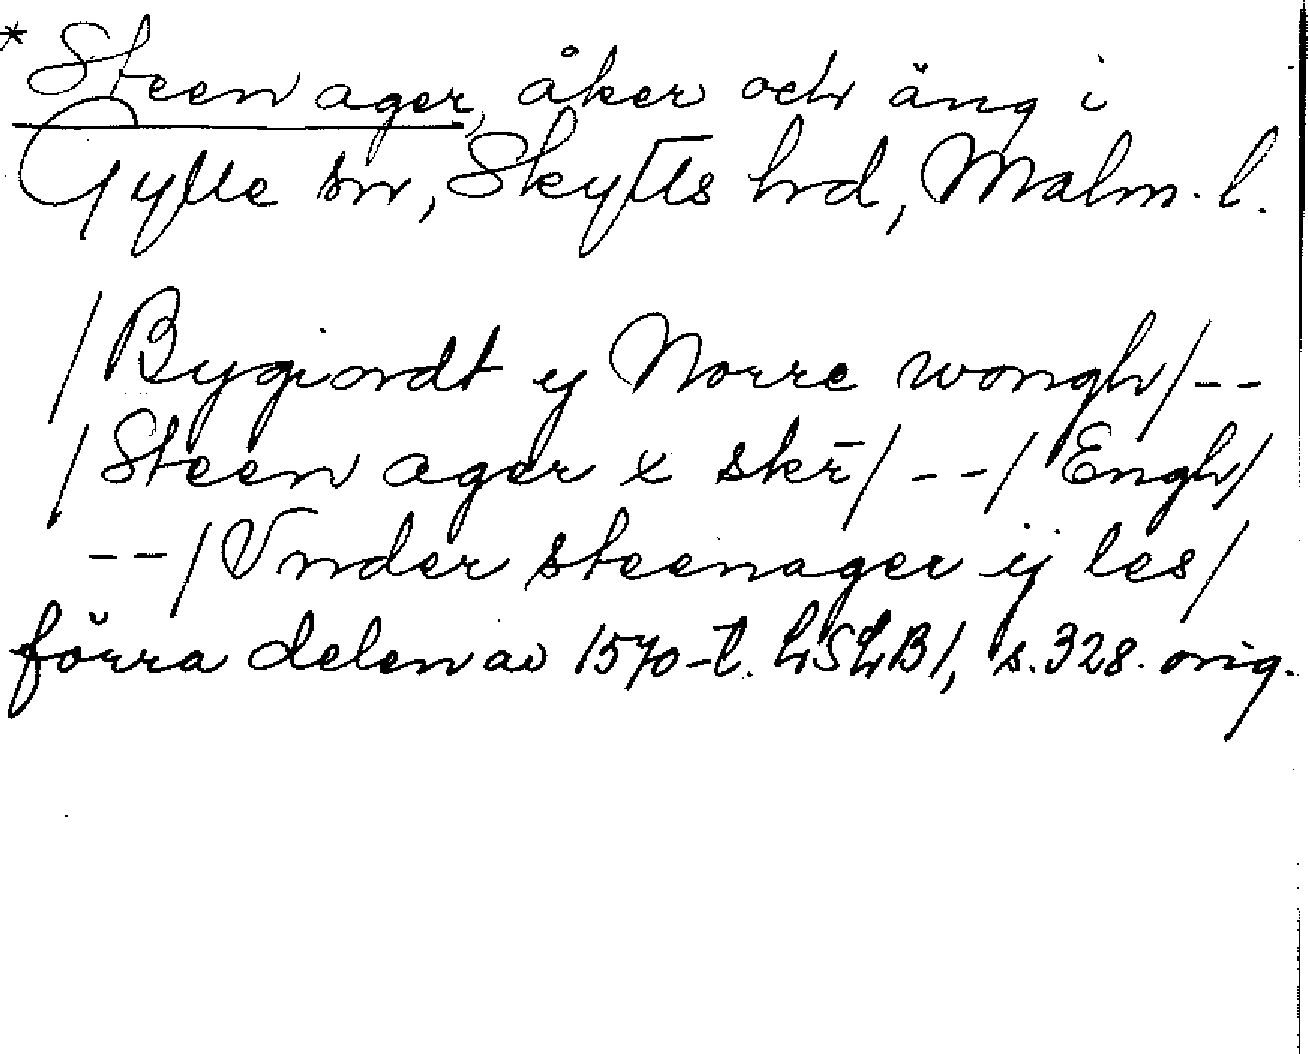 * Steen ager, åker och äng i
Gylle sn, Skytts hd, Malm. l.
/Bygiordt y Norre wongh/--
/Steen ager x skr̄/--/Engh/
--/Vnder steenager ij les/
förra delen av 1570-t. LSLB1, s. 328. orig.